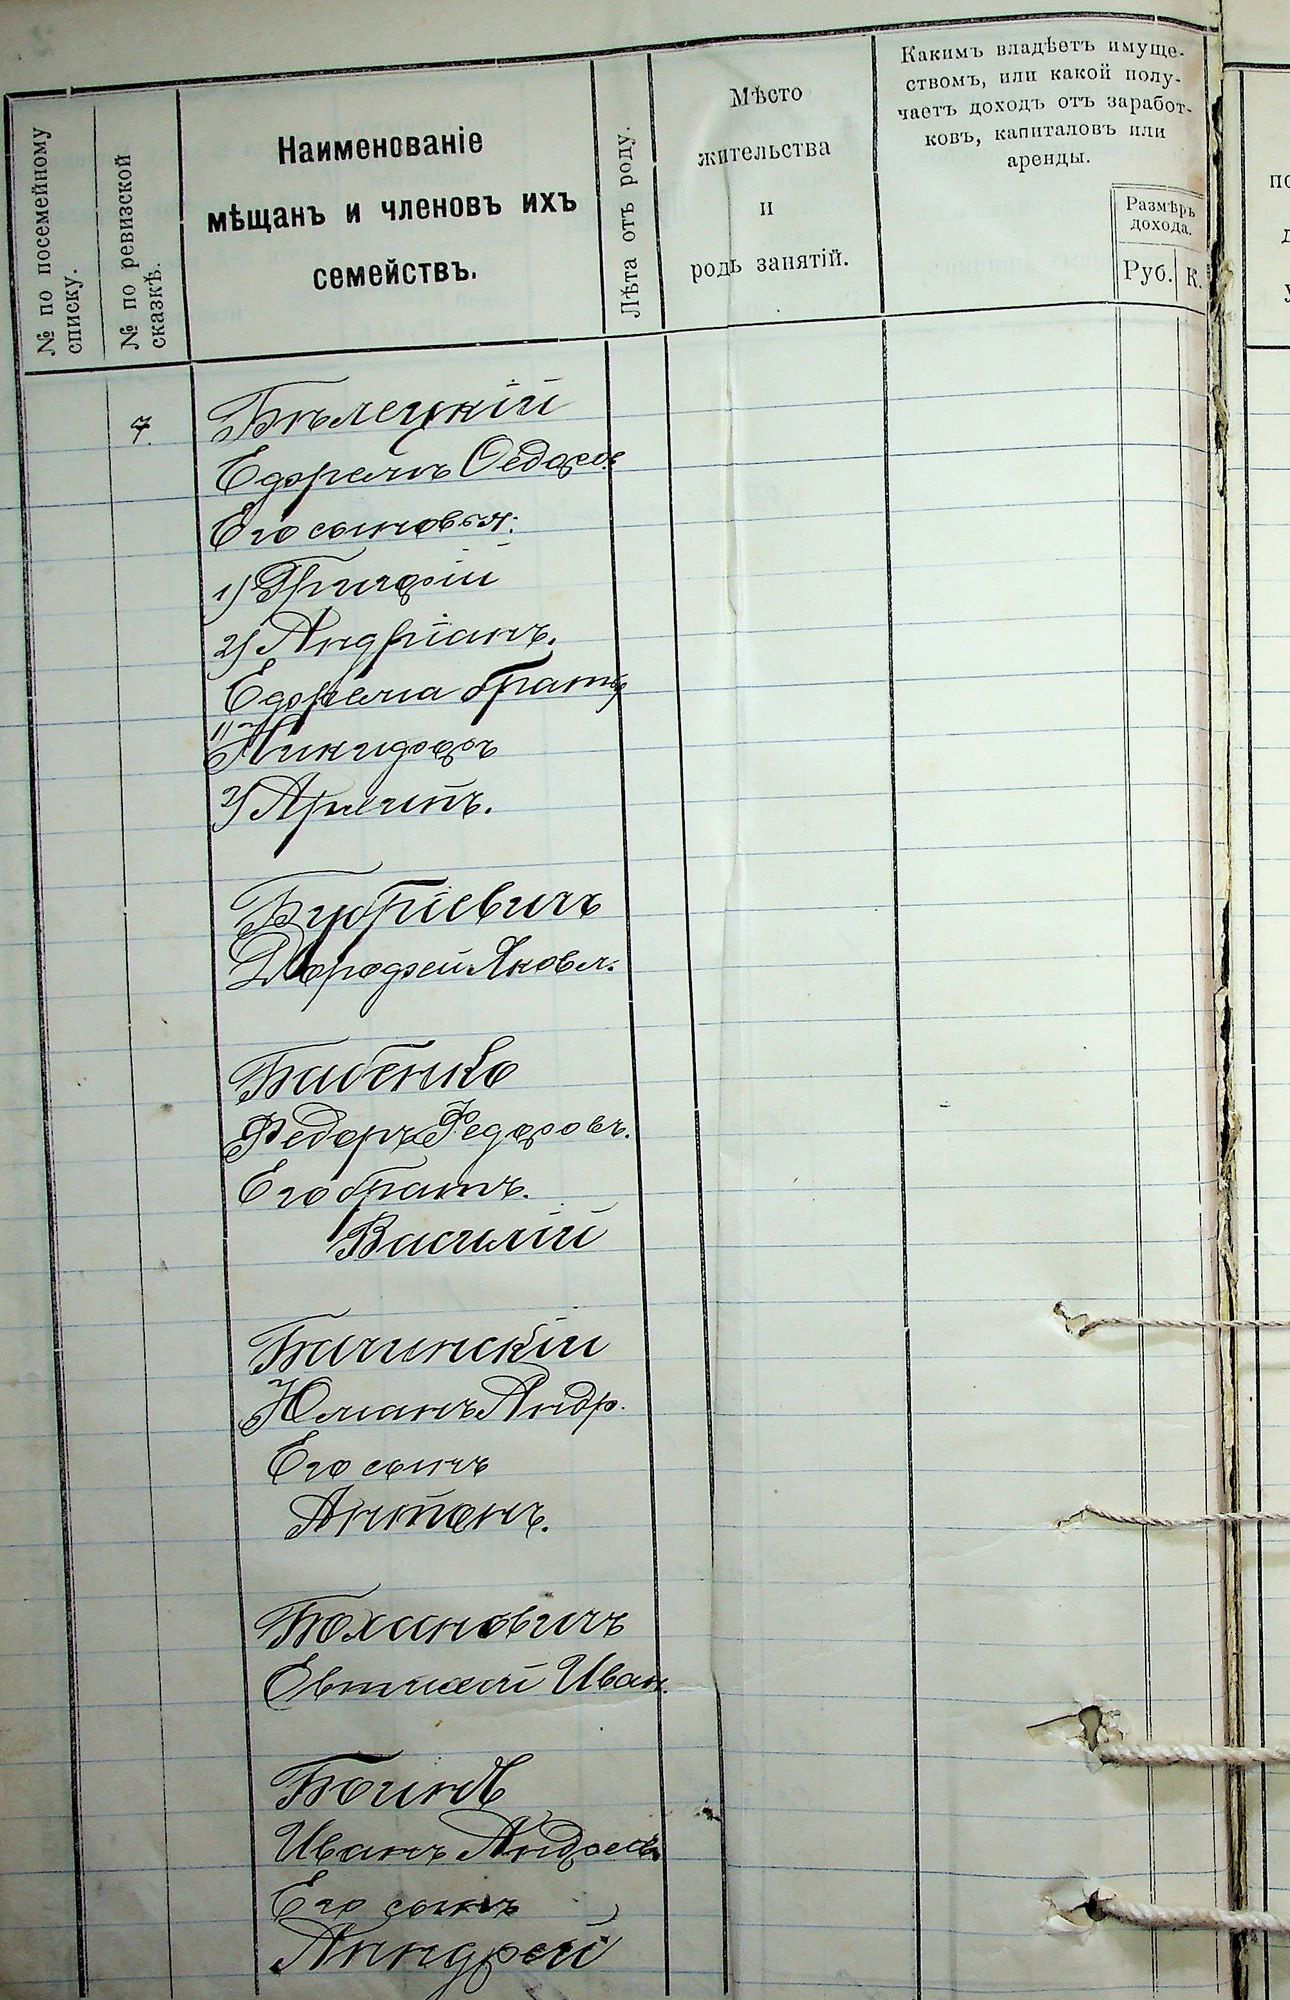 № по посемейному
списку.
№ по ревизской
сказкѣ.
Наименованіе
мѣщанъ и членовъ ихъ
семействъ.
Лѣта отъ роду.
Мѣсто
жительства
и
родъ занятій.
Какимъ владѣетъ имуще-
ствомъ, или какой полу-
чаетъ доходъ отъ заработ-
ковъ, капиталовъ или
аренды.
Размѣръ
дохода.
Руб.
К.
7.
Бѣлецкій
Ефремъ Ѳедоров
Его сыновья:
1) Григорій
2) Андріанъ.
Ефрема братья
1) Никифоръ
2)
Дорофей Яковл.
Бабенко
Федоръ Федоровъ.
Его братъ.
Василій
Бачинскій
Юліанъ Андр.
Его сынъ
Антонъ.
Бохановичъ
Евтихій Иван.
Иванъ Андреевъ
Его сынъ
Анндрей